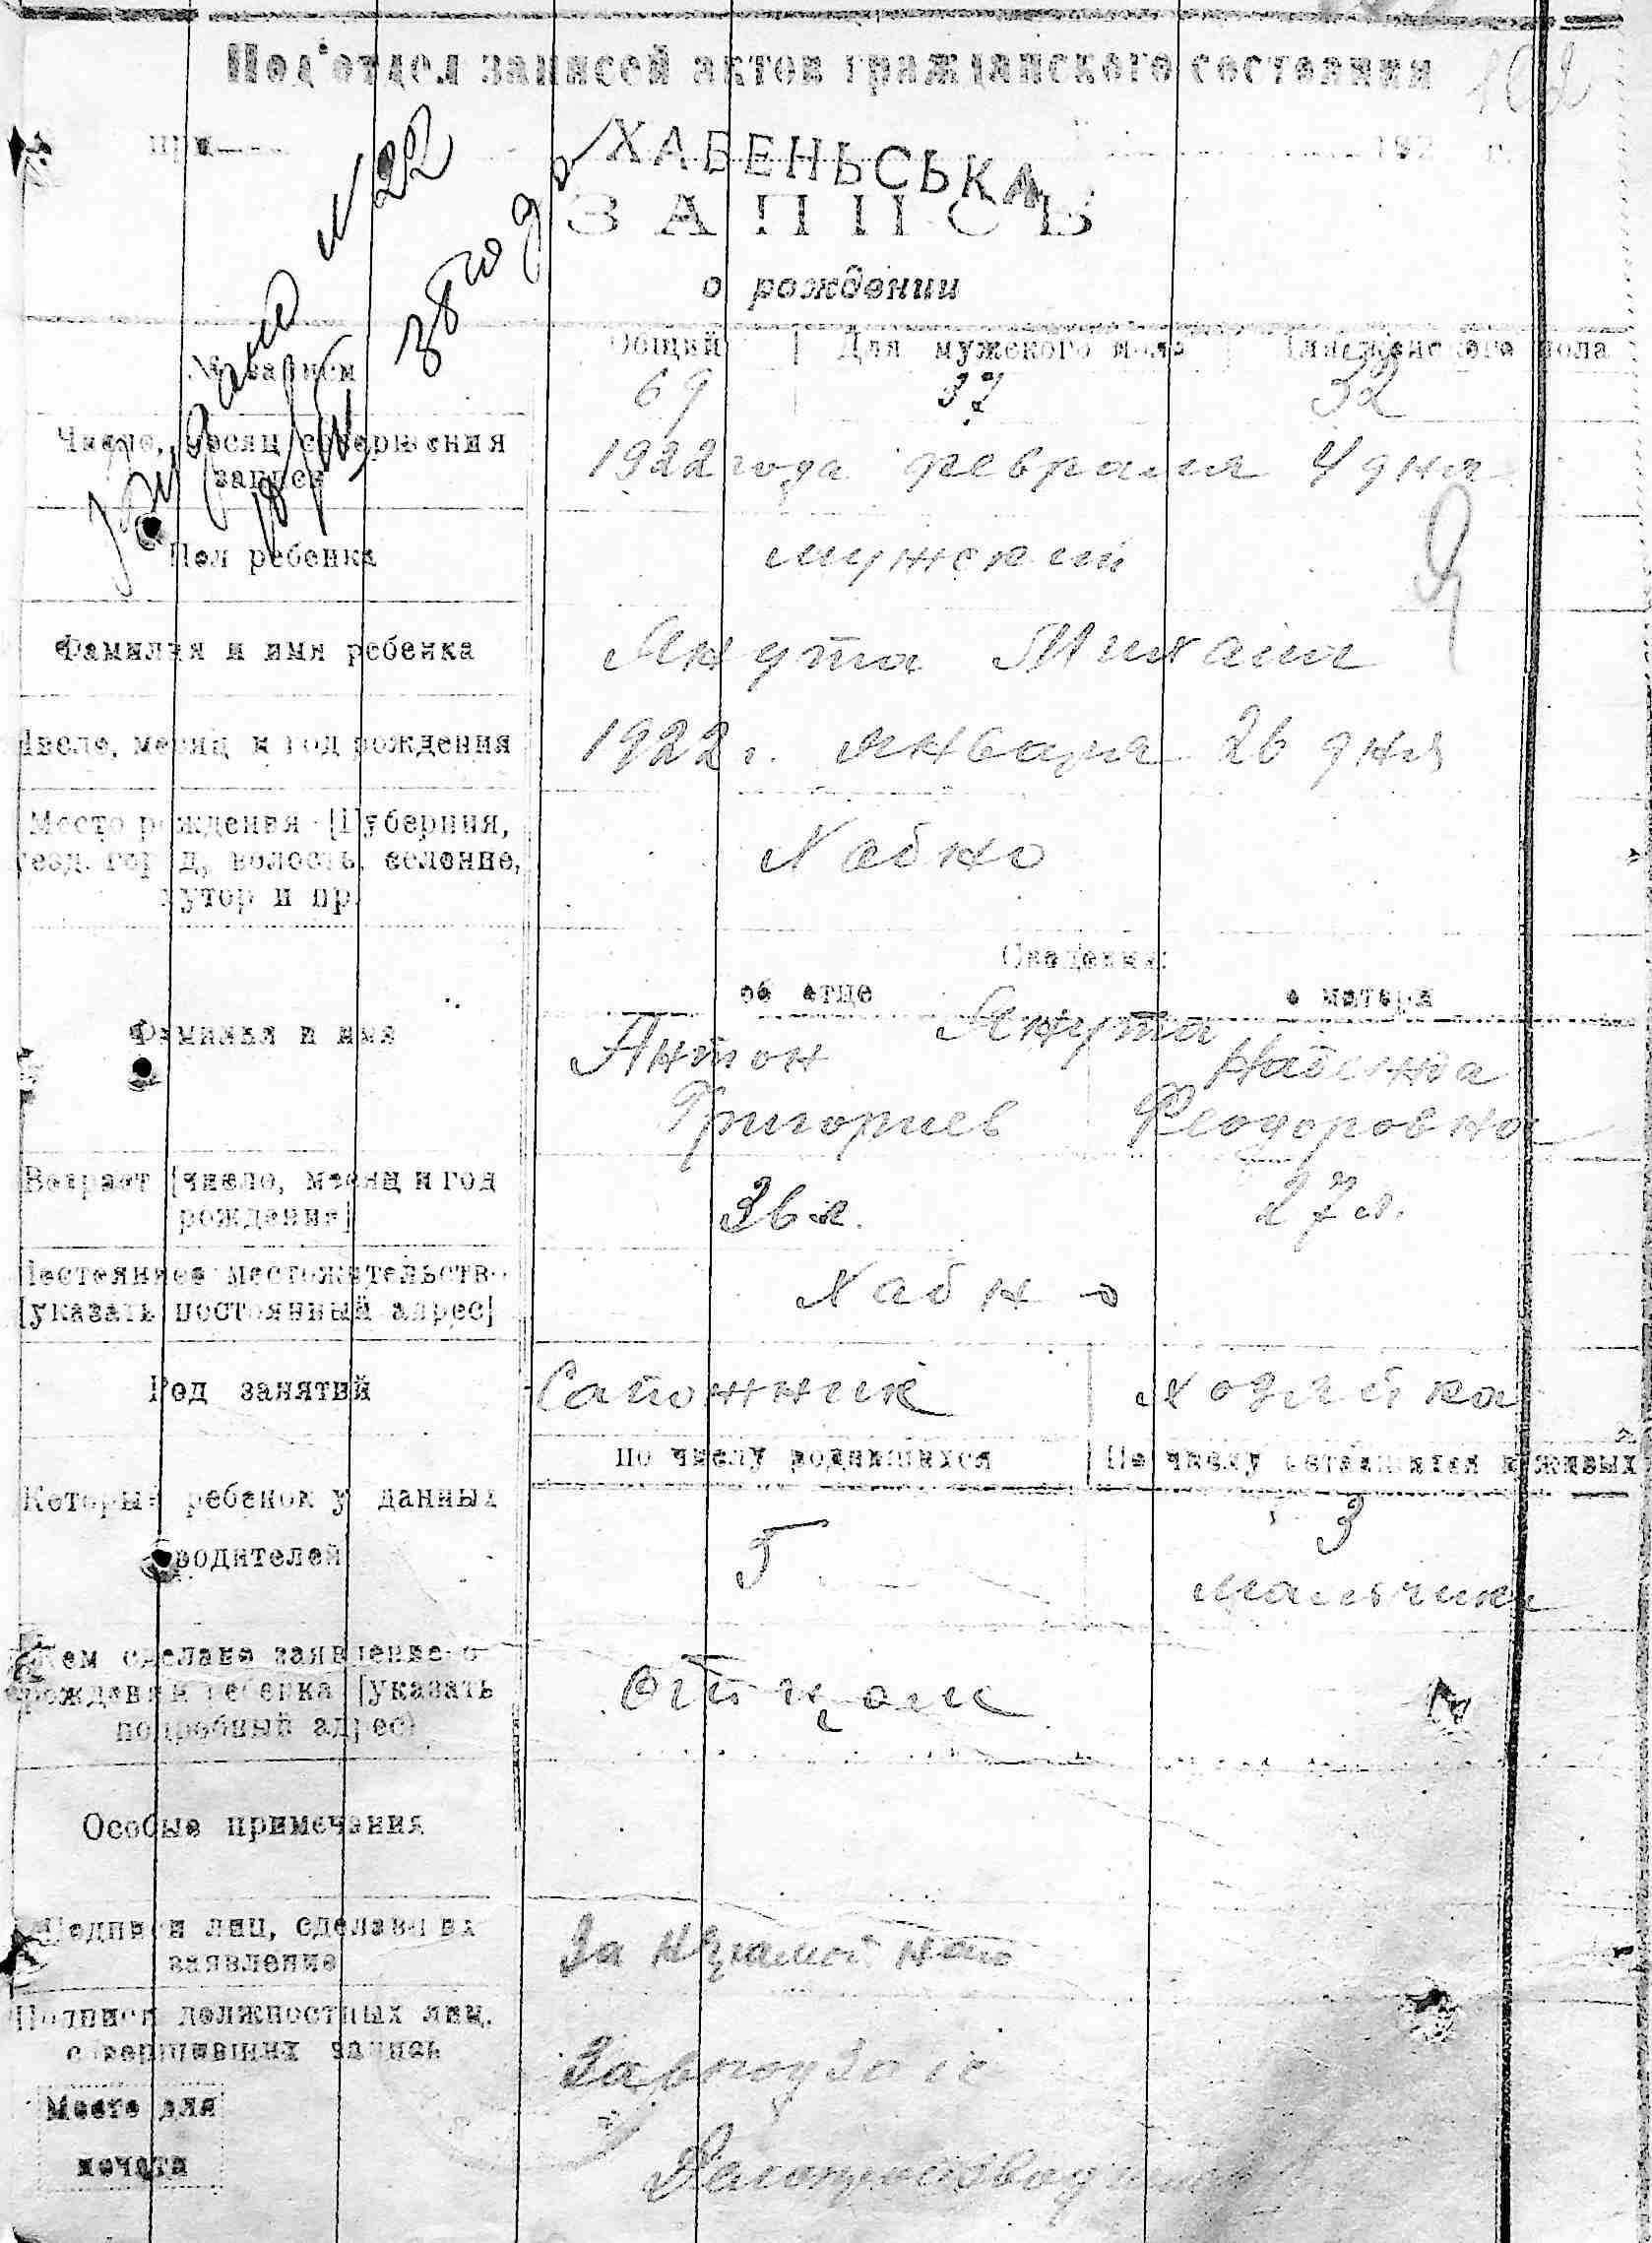 Под'отдел записей актов гражданского состояния
102
при
192 г.
ХАБЕНЬСЬКА
ЗАПИСЬ
о рождении
№ 22
38 года
Общий Для мужского пола Для женского пола
№ записи 69 37 32
Число, месяц совершения записи
1922 года февраля 4 дня
Пол ребенка мужский
Я
Фамилия и имя ребенка Якута Михаил
Число, месяц и год рождения 1922 г. января 26 дня
Место рождения [Губерния,
уезд, город, волость, селение,
хутор и пр.
Хабно
Сведения:
об отце о матери
Фамилия и имя
Якута
Антон Надежда
Григорьев Феодоровна
Возраст [число, месяц и год
рождения]
36 л. 27 л.
Постоянное местожительство
[указать постоянный адрес]
Хабно
Род занятий Сапожник Хозяйка
По числу родившихся По числу оставшихся в живых
Который ребенок у данных
родителей
5 3
мальчик
Кем сделано заявление о
рождении ребенка [указать
подробный адрес)
Отцом
Особые примечания
Подписи лиц, сделавших
заявление
За
Подписи должностных лиц,
совершивших запись
Место для
печати
Делопроизводитель